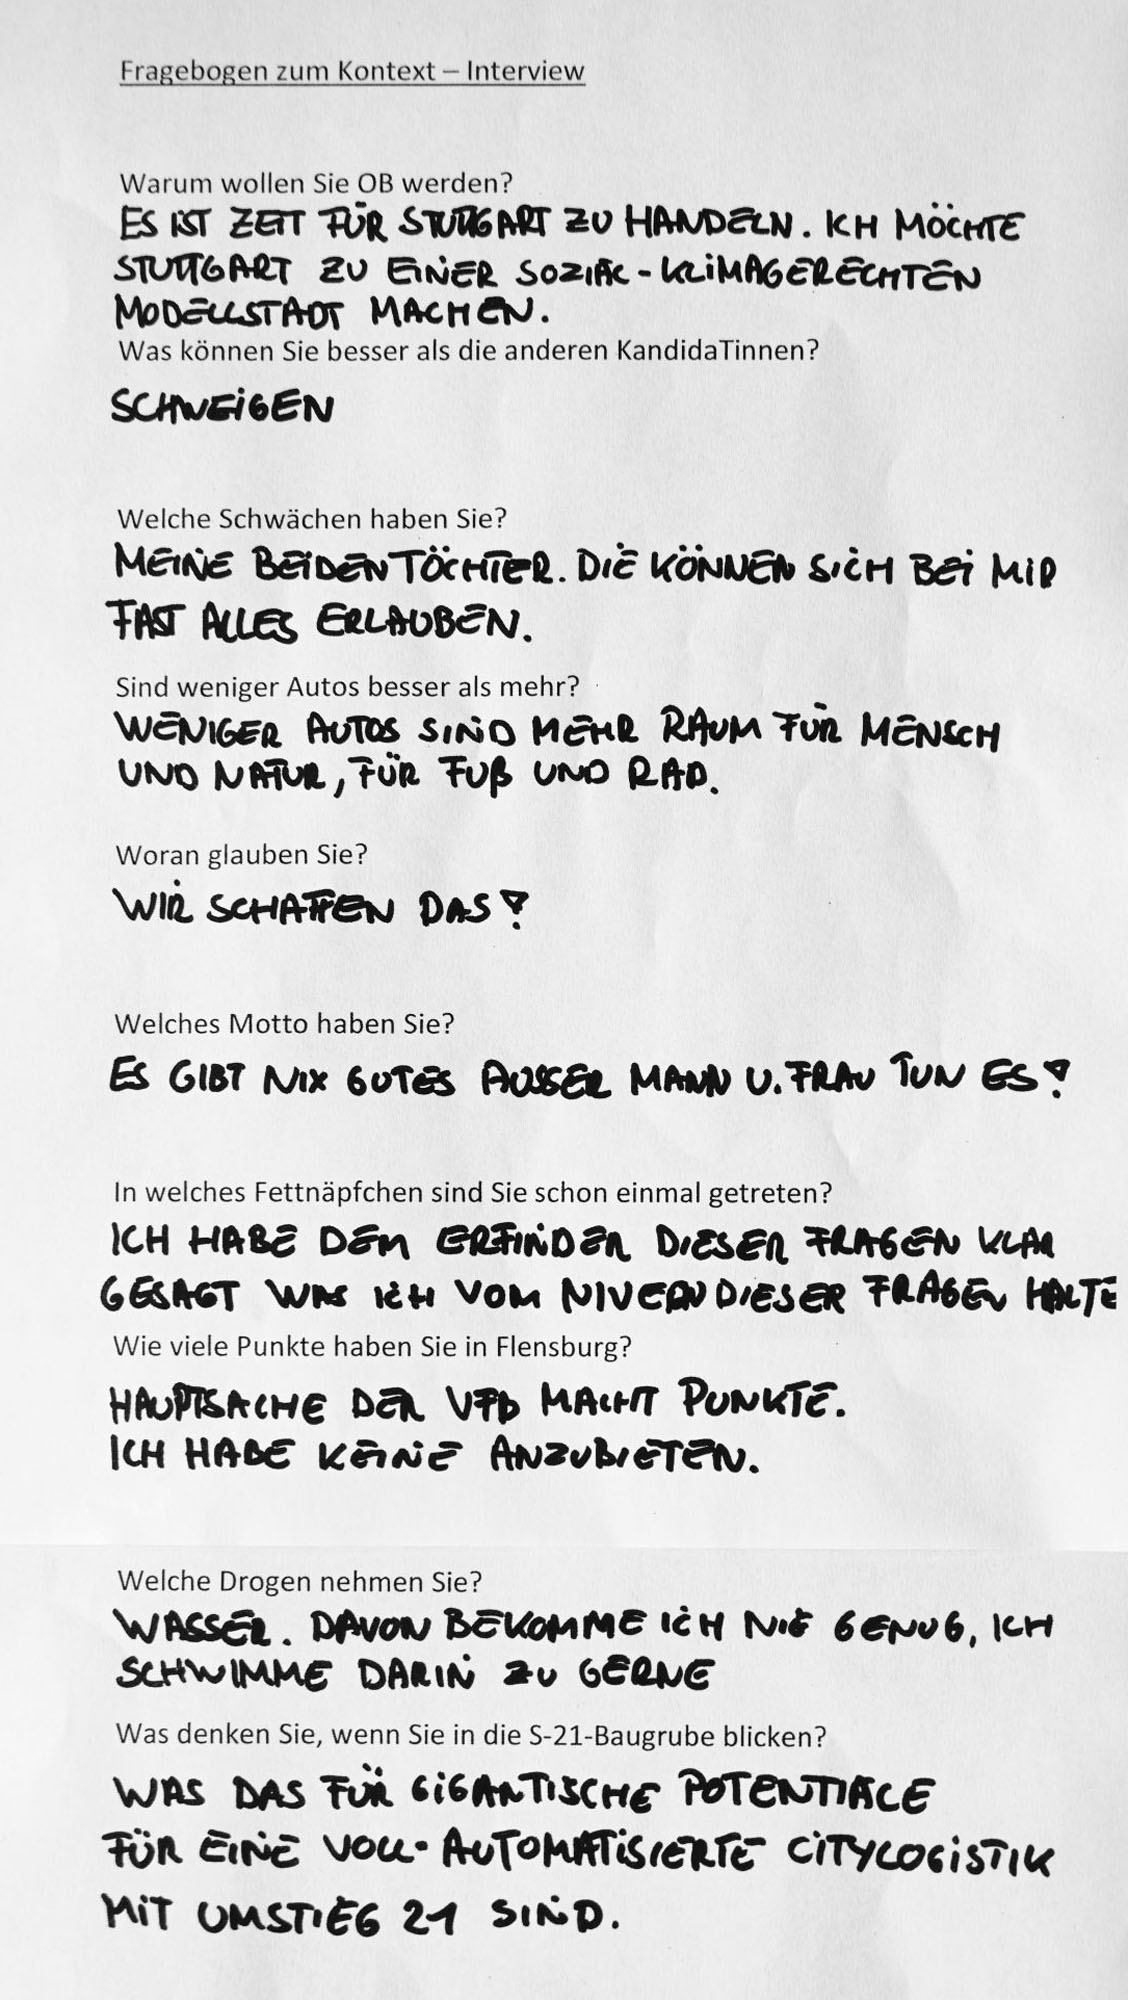 Fragebogen zum Kontext – Interview
Warum wollen Sie OB werden?
ES IST ZEIT FÜR STUTTGART ZU HANDELN. ICH MÖCHTE
STUTTGART ZU EINER SOZIAL-KLIMAGERECHTEN
MODELLSTADT MACHEN.
Was können Sie besser als die anderen KandidaTinnen?
SCHWEIGEN
Welche Schwächen haben Sie?
MEINE BEIDEN TÖCHTER. DIE KÖNNEN SICH BEI MIR
FAST ALLES ERLAUBEN.
Sind weniger Autos besser als mehr?
WENIGER AUTOS SIND MEHR RAUM FÜR MENSCH
UND NATUR, FÜR FUß UND RAD.
Woran glauben Sie?
WIR SCHAFFEN DAS!
Welches Motto haben Sie?
ES GIBT NIX GUTES AUSSER MANN U. FRAU TUN ES!
In welches Fettnäpfchen sind Sie schon einmal getreten?
ICH HABE DEM ERFINDER DIESER FRAGEN KLAR
GESAGT WAS ICH VOM NIVEAU DIESER FRAGEN HALTE
Wie viele Punkte haben Sie in Flensburg?
HAUPTSACHE DER VFB MACHT PUNKTE.
ICH HABE KEINE ANZUBIETEN.
Welche Drogen nehmen Sie?
WASSER. DAVON BEKOMME ICH NIE GENUG, ICH
SCHWIMME DARIN ZU GERNE
Was denken Sie, wenn Sie in die S-21-Baugrube blicken?
WAS DAS FÜR GIGANTISCHE POTENTIALE
FÜR EINE VOLL-AUTOMATISIERTE CITYLOGISTIK
MIT UMSTIEG 21 SIND.